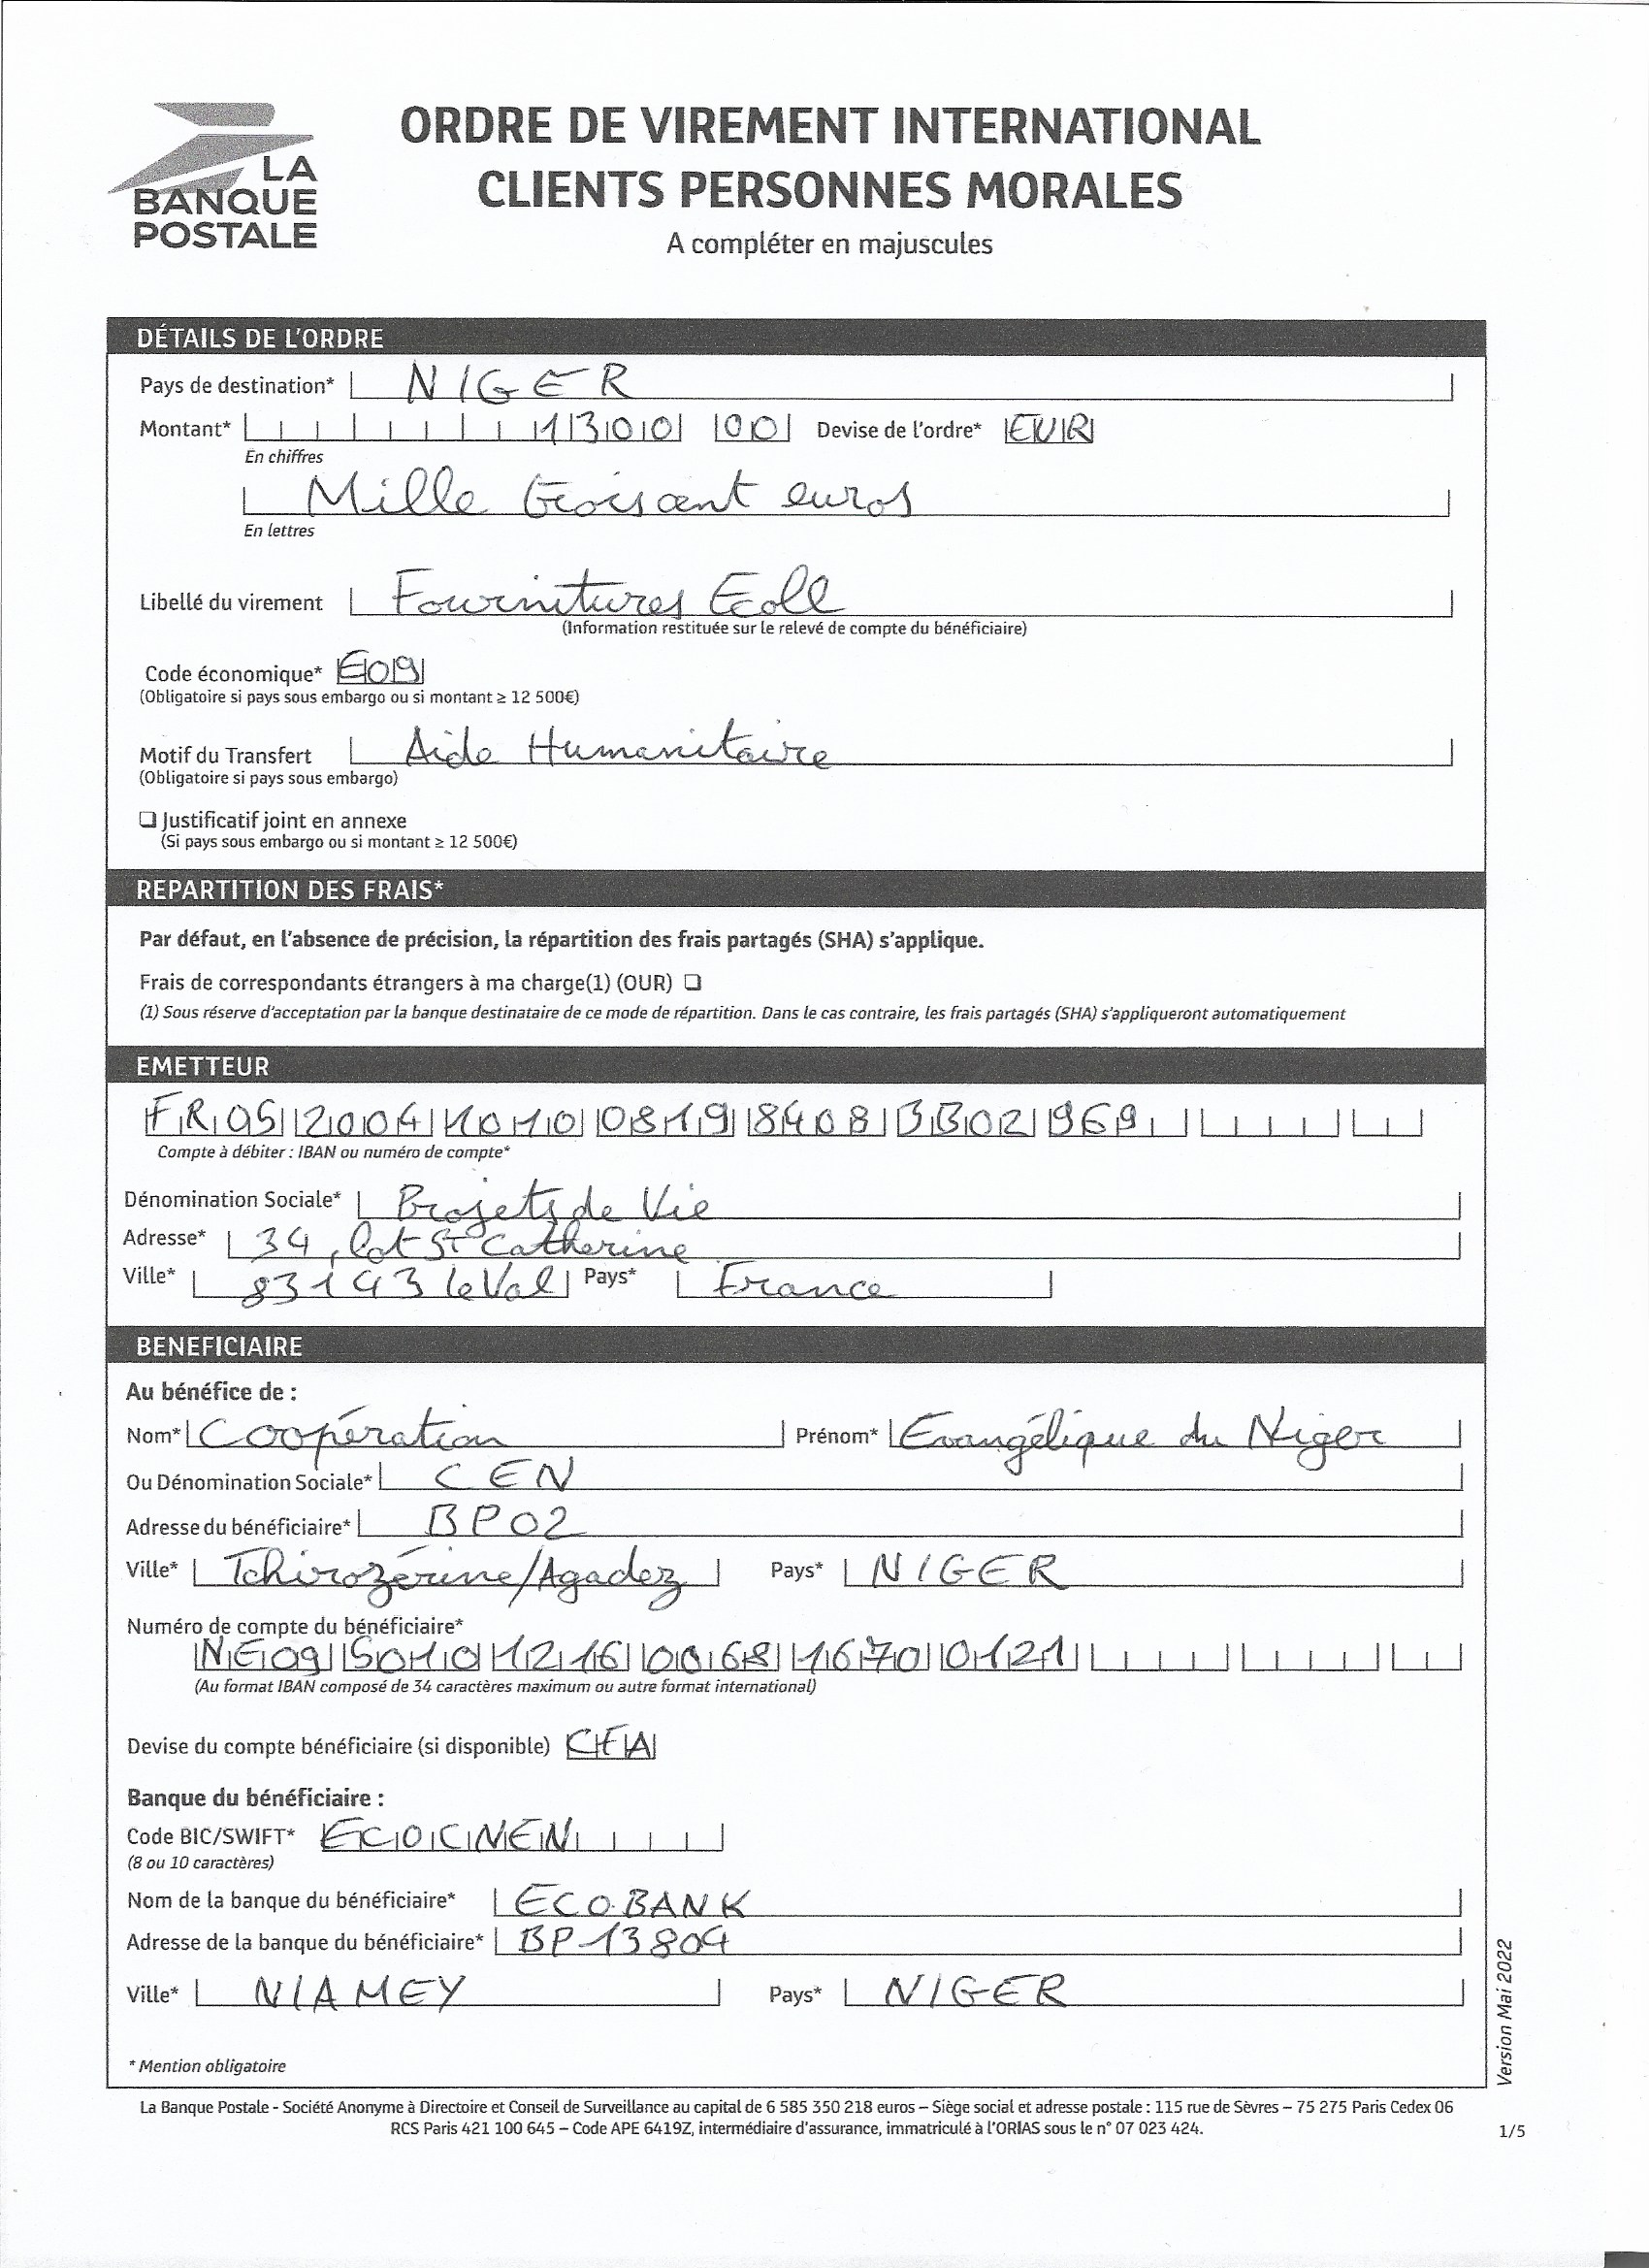 LA
BANQUE
POSTALE
ORDRE DE VIREMENT INTERNATIONAL
CLIENTS PERSONNES MORALES
A compléter en majuscules
DÉTAILS DE L'ORDRE
Pays de destination* NIGER
Montant* 1300 00 Devise de l'ordre* EUR
En chiffres
Mille troiscent euros
En lettres
Libellé du virement Fournitures Ecole
(Information restituée sur le relevé de compte du bénéficiaire)
Code économique* E09
(Obligatoire si pays sous embargo ou si montant ≥ 12 500€)
Motif du Transfert Aide Humanitaire
(Obligatoire si pays sous embargo)
❑ Justificatif joint en annexe
(Si pays sous embargo ou si montant ≥ 12 500€)
REPARTITION DES FRAIS*
Par défaut, en l'absence de précision, la répartition des frais partagés (SHA) s'applique.
Frais de correspondants étrangers à ma charge(1) (OUR) ❑
(1) Sous réserve d'acceptation par la banque destinataire de ce mode de répartition. Dans le cas contraire, les frais partagés (SHA) s'appliqueront automatiquement
EMETTEUR
FR05 2004 1010 0819 8408 3B02 969
Compte à débiter : IBAN ou numéro de compte*
Dénomination Sociale* Projets de Vie
Adresse* 34, lot St Catherine
Ville* 83143 le Val Pays* France
BENEFICIAIRE
Au bénéfice de :
Nom* Coopération Prénom* Evangélique du Niger
Ou Dénomination Sociale* CEN
Adresse du bénéficiaire* BP02
Ville* Tchirozérine/Agadez Pays* NIGER
Numéro de compte du bénéficiaire*
NE09 5010 1216 0068 1670 0121
(Au format IBAN composé de 34 caractères maximum ou autre format international)
Devise du compte bénéficiaire (si disponible) CFA
Banque du bénéficiaire :
Code BIC/SWIFT* ECOCNEN
(8 ou 10 caractères)
Nom de la banque du bénéficiaire* ECOBANK
Adresse de la banque du bénéficiaire* BP 13804
Ville* NIAMEY Pays* NIGER
* Mention obligatoire
Version Mai 2022
La Banque Postale - Société Anonyme à Directoire et Conseil de Surveillance au capital de 6 585 350 218 euros – Siège social et adresse postale : 115 rue de Sèvres – 75 275 Paris Cedex 06
RCS Paris 421 100 645 – Code APE 6419Z, intermédiaire d'assurance, immatriculé à l'ORIAS sous le n° 07 023 424.
1/5